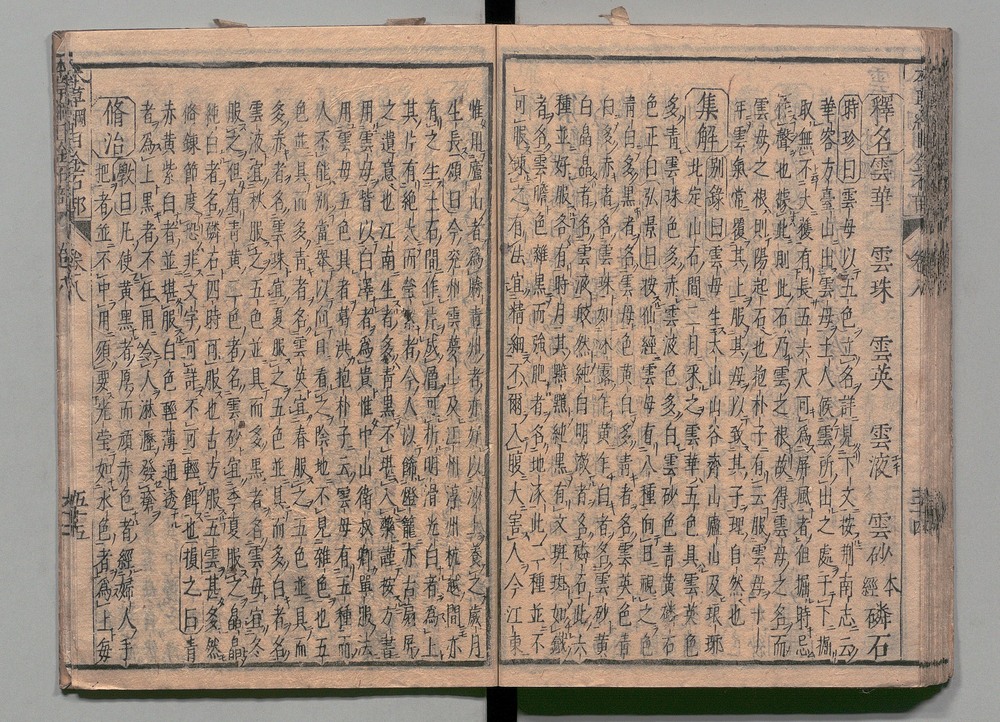 釋名雲華 雲珠 雲英 雲液 雲砂本經磷石
時珍曰雲母以五色立名詳見下文按荊南志云
華容方臺山出雲母土人候雲所出之處于下掘
取無不大獲有長五六尺可為屏風者但掘時忌
作聲也據此則此石乃雲母之根故得雲母之名而
雲母之根則陽起石也抱朴子有云服雲母十
年雲氣常覆其上服其母以致其子理自然也
集解別錄曰雲母生太山山谷齊山廬山及琅琊
北定山石間二月采之雲華五色具雲英色
多青雲珠色多赤雲液色多白雲砂色青黃磷石
色正白弘景曰按仙經雲母有八種向日視之色
青白多黑者名雲母色黃白多青者名雲英色青
白多赤者名雲珠如冰露乍黃乍白者名雲砂黃
白晶晶者名雲液皎然純白明澈者名磷石此六
種並好服各有時月其黯黯純黑有文斑斑如鐵
者名雲膽色雜黑而強肥者名地涿此二種並不
可服鍊之有法宜精細不爾入腹大害人今江東
惟用廬山者為勝青州者亦好以沙土養之歲月
生長頌曰今兗州雲夢山及江州淳州杭越間亦
有之生土石間作片成層可析明滑光白者為上
其片有絕大而瑩潔者今人以飾燈籠亦古扇屏
之遺意也江南生者多青黑不堪入藥謹按方書
用雲母皆以白澤者為貴惟中山衛叔卿單服法
用雲母五色具者葛洪抱朴子云雲母有五種而
人不能別當舉以向日看之陰地不見雜色也五
色並具而多青者名雲英宜春服之五色並具而
多赤者名雲珠宜夏服之五色並具而多白者名
雲液宜秋服之五色並具而多黑者名雲母宜冬
服之但有青黃二色者名雲砂宜季夏服之晶晶
純白者名磷石四時可服也古方服五雲甚多然
修鍊節度恐非文字可詳不可輕餌也損之曰青
赤黃紫白者並堪服白色輕薄通透
者為上黑者不任用令人淋瀝發瘡
脩治斅曰凡使黃黑者厚而頑赤色者經婦人手
把者並不中用須要光瑩如冰色者為上每